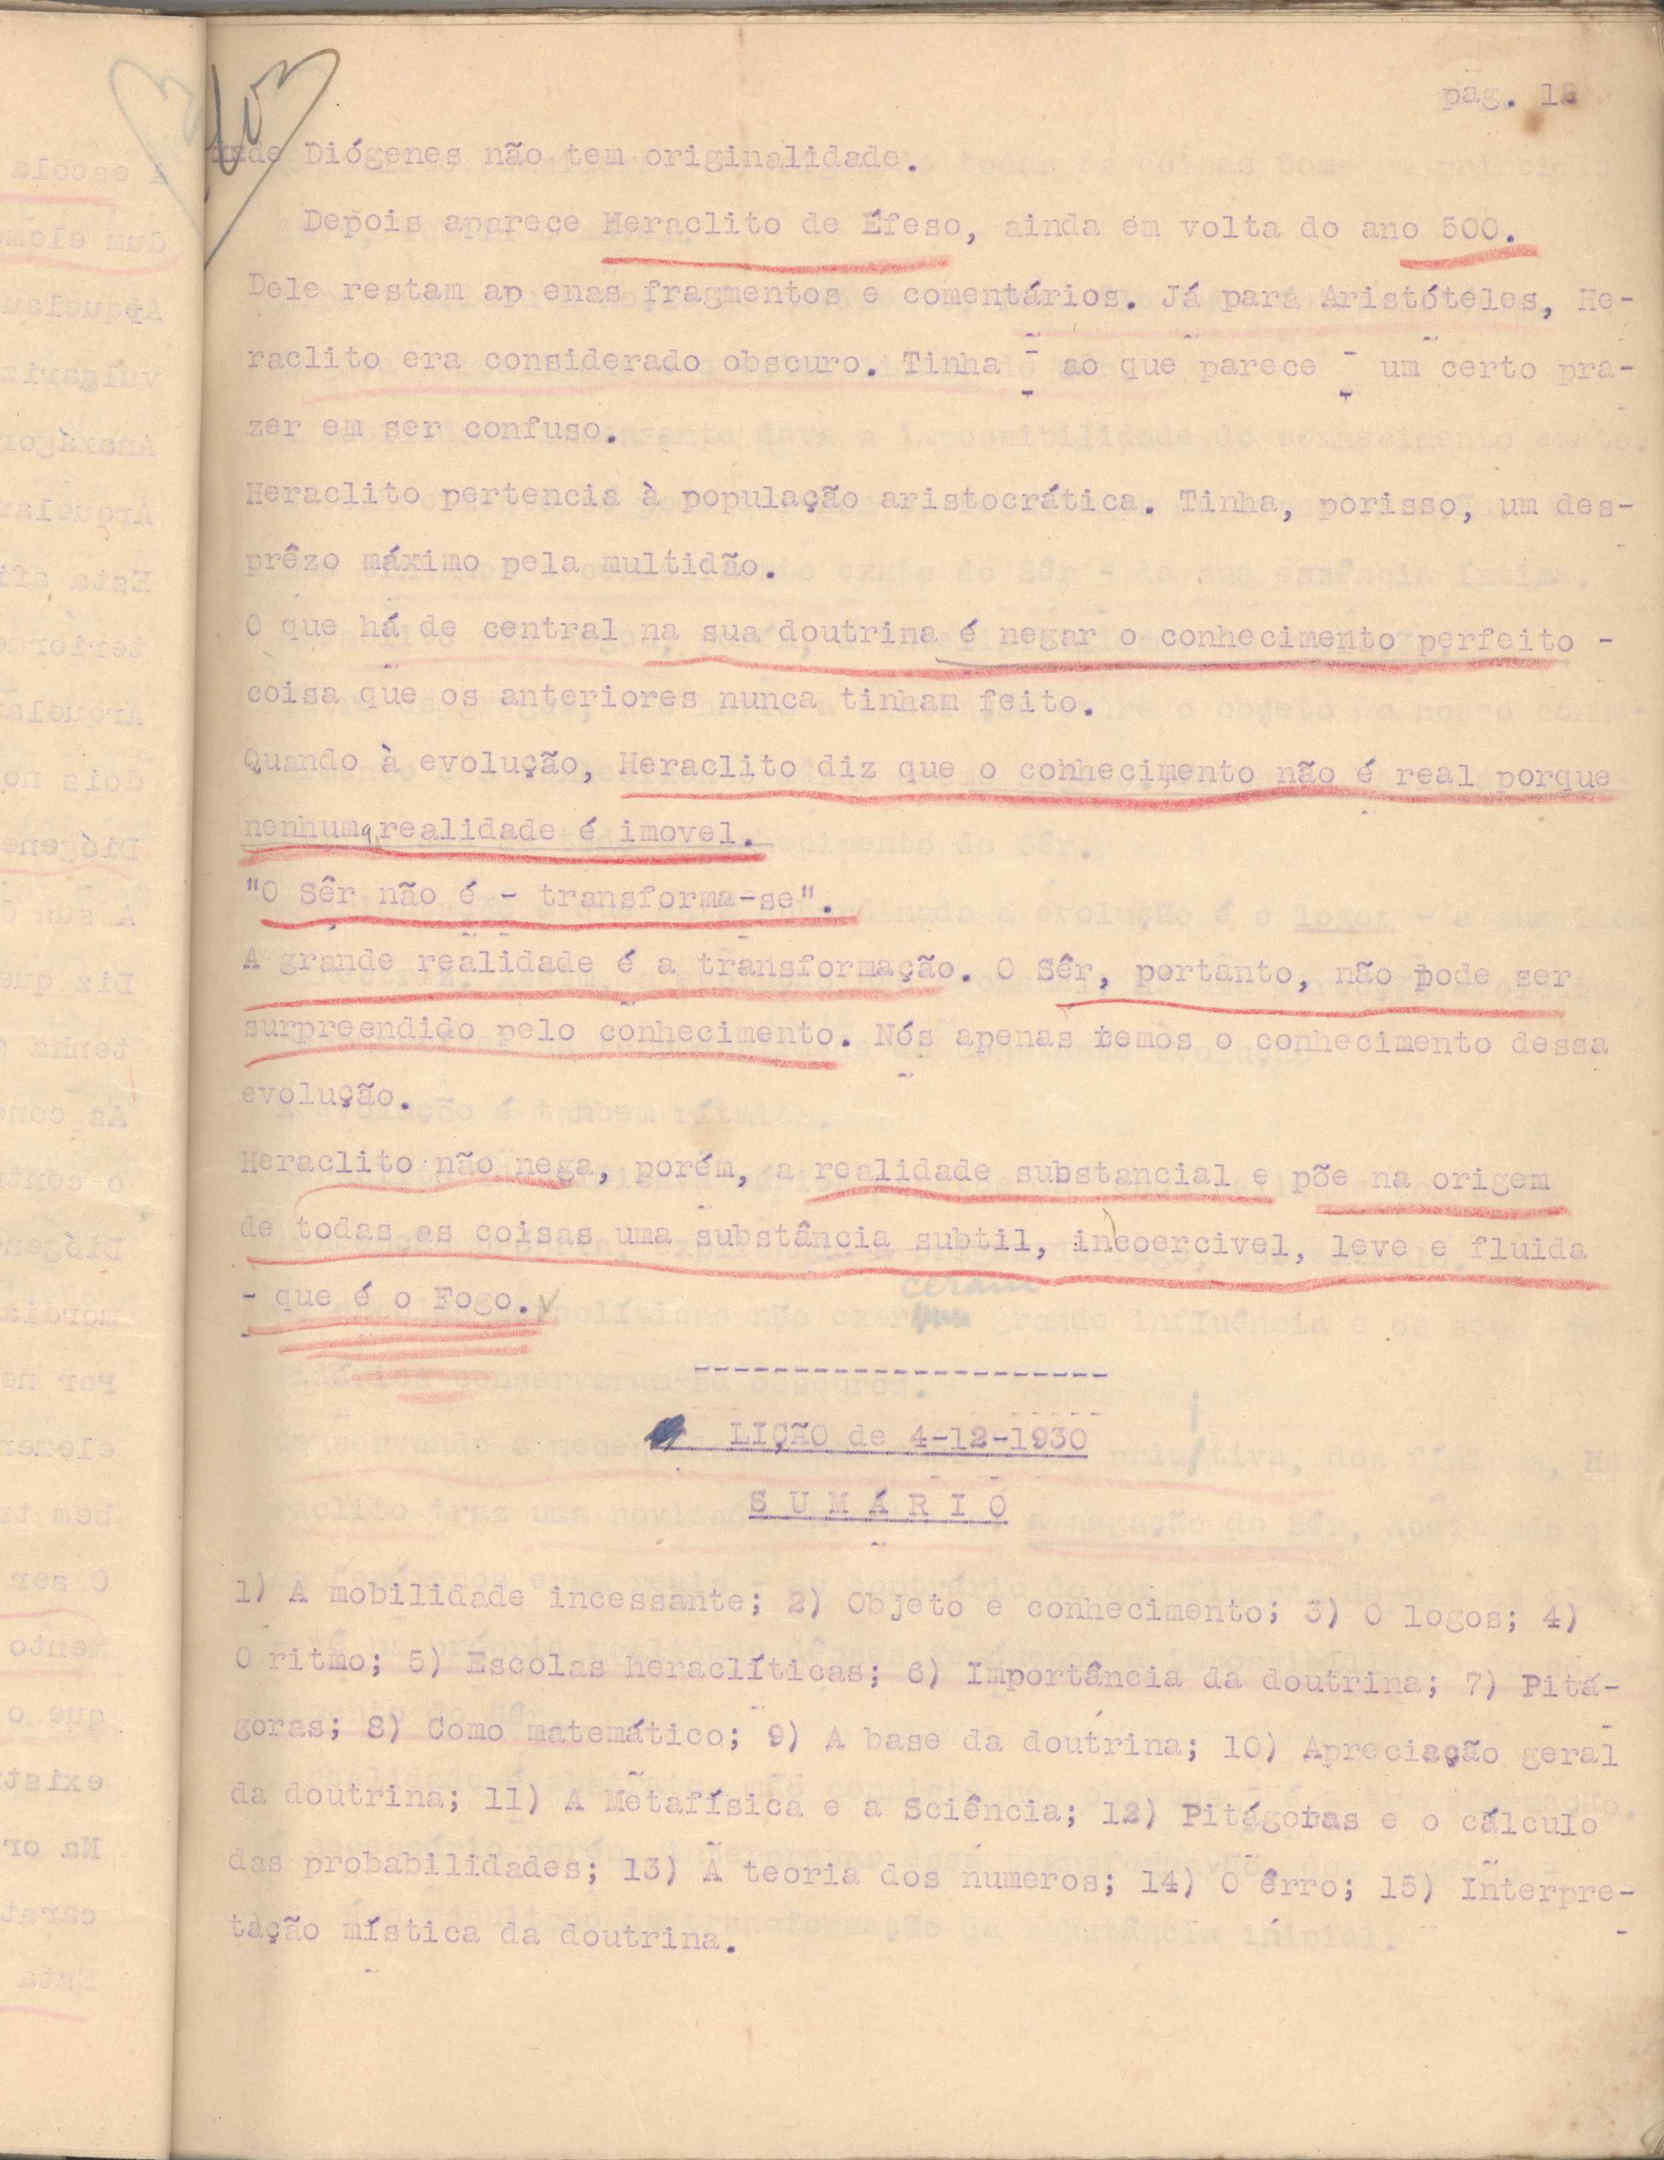 pag. 18
onde Diógenes não tem originalidade.
Depois aparece Heraclito de Éfeso, ainda em volta do ano 500.
Dele restam ap enas fragmentos e comentários. Já para Aristóteles, He-
raclito era considerado obscuro. Tinha - ao que parece - um certo pra-
zer em ser confuso.
Heraclito pertencia à população aristocrática. Tinha, porisso, um des-
prêzo máximo pela multidão.
O que há de central na sua doutrina é negar o conhecimento perfeito -
coisa que os anteriores nunca tinham feito.
Quando à evolução, Heraclito diz que o conhecimento não é real porque
nenhuma realidade é imovel.
"O Sêr não é - transforma-se".
A grande realidade é a transformação. O Sêr, portanto, não pode ser
surpreendido pelo conhecimento. Nós apenas temos o conhecimento dessa
evolução.
Heraclito não nega, porém, a realidade substancial e põe na origem
de todas as coisas uma substância subtil, incoercivel, leve e fluida
- que é o Fogo.
---------------------
LIÇÃO de 4-12-1930
S U M Á R I O
1) A mobilidade incessante; 2) Objeto e conhecimento; 3) O logos; 4)
O ritmo; 5) Escolas heraclíticas; 6) Importância da doutrina; 7) Pitá-
goras; 8) Como matemático; 9) A base da doutrina; 10) Apreciação geral
da doutrina; 11) A Metafísica e a Sciência; 12) Pitágoras e o cálculo
das probabilidades; 13) A teoria dos numeros; 14) O êrro; 15) Interpre-
tação mística da doutrina.